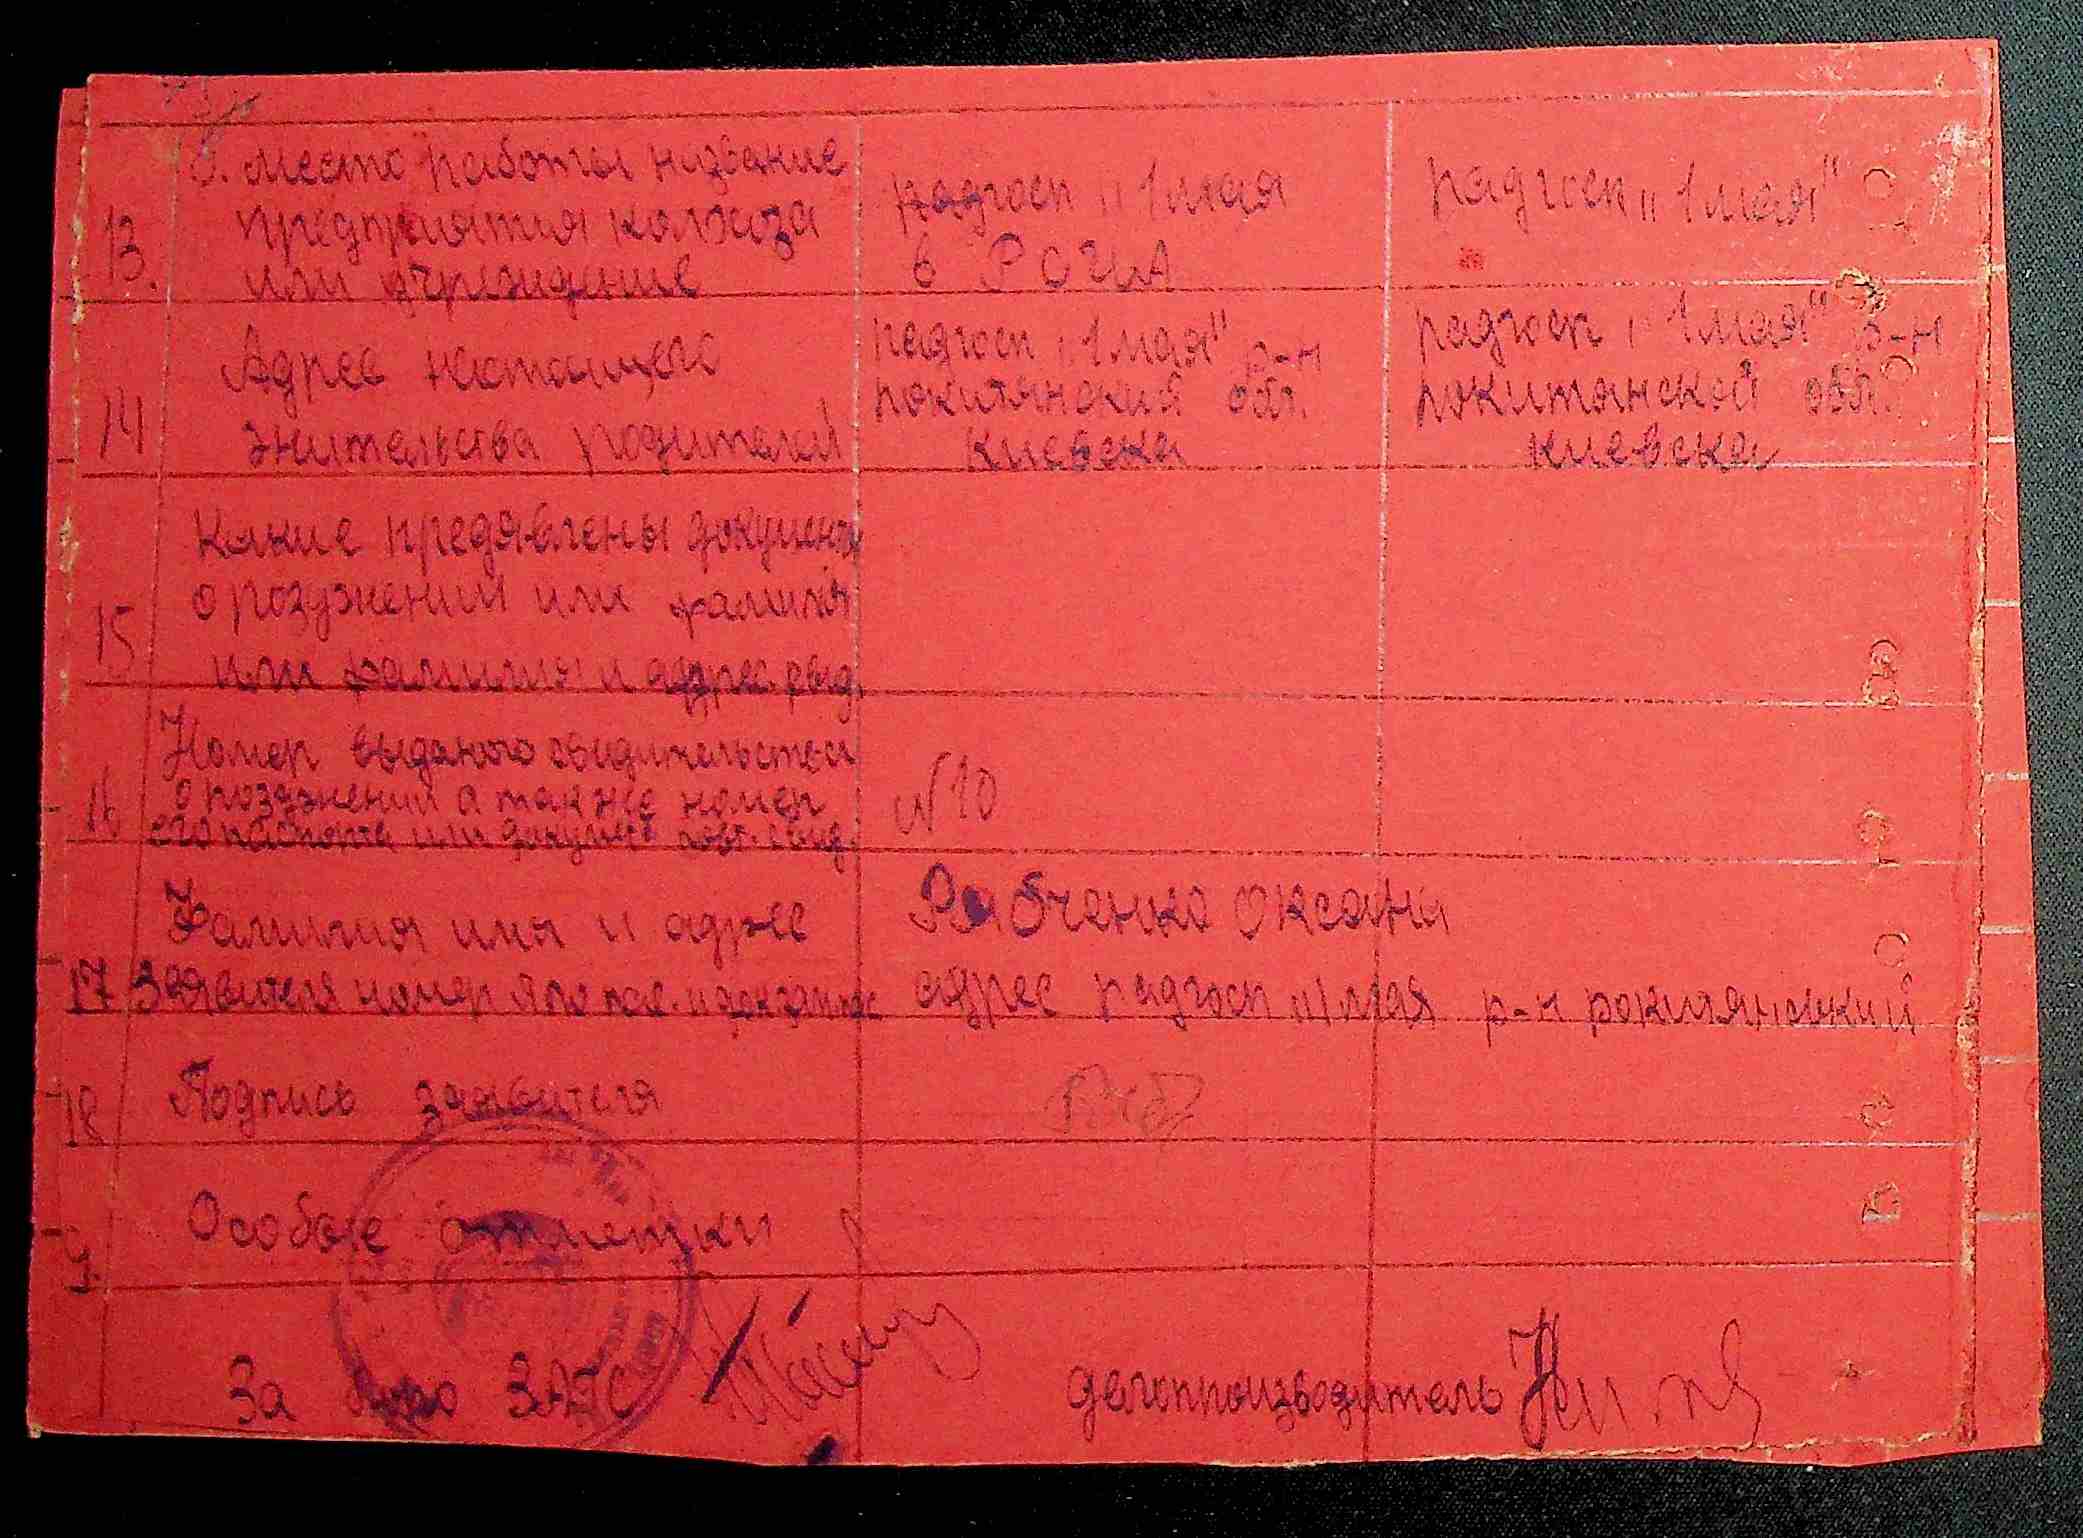 13. место работы название
предприятия колхоза
или учреждение
радгосп „1 мая
в РОЧИА
радгосп „1 мая"
14 Адрес настоящего
жительства родителей
радгосп „1 мая" р-н
рокитянский обл.
киевска
радгосп „1 мая" р-н
рокитянской обл.
киевска
15 Какие предявлены документы
о розужнений или фамилия
или фамилия и адрес свид.
16 Номер выданого свидительства
о розджений а также номер
его паспорта или
№10
17 Фамилия имя и адрес
Заявителя номер
Рябченко Оксана
адрес радгосп „1 мая р-н рокитянский
18 Подпись заявителя
Ряб
Особые отметки
За бюро ЗАГС
делопроизводитель